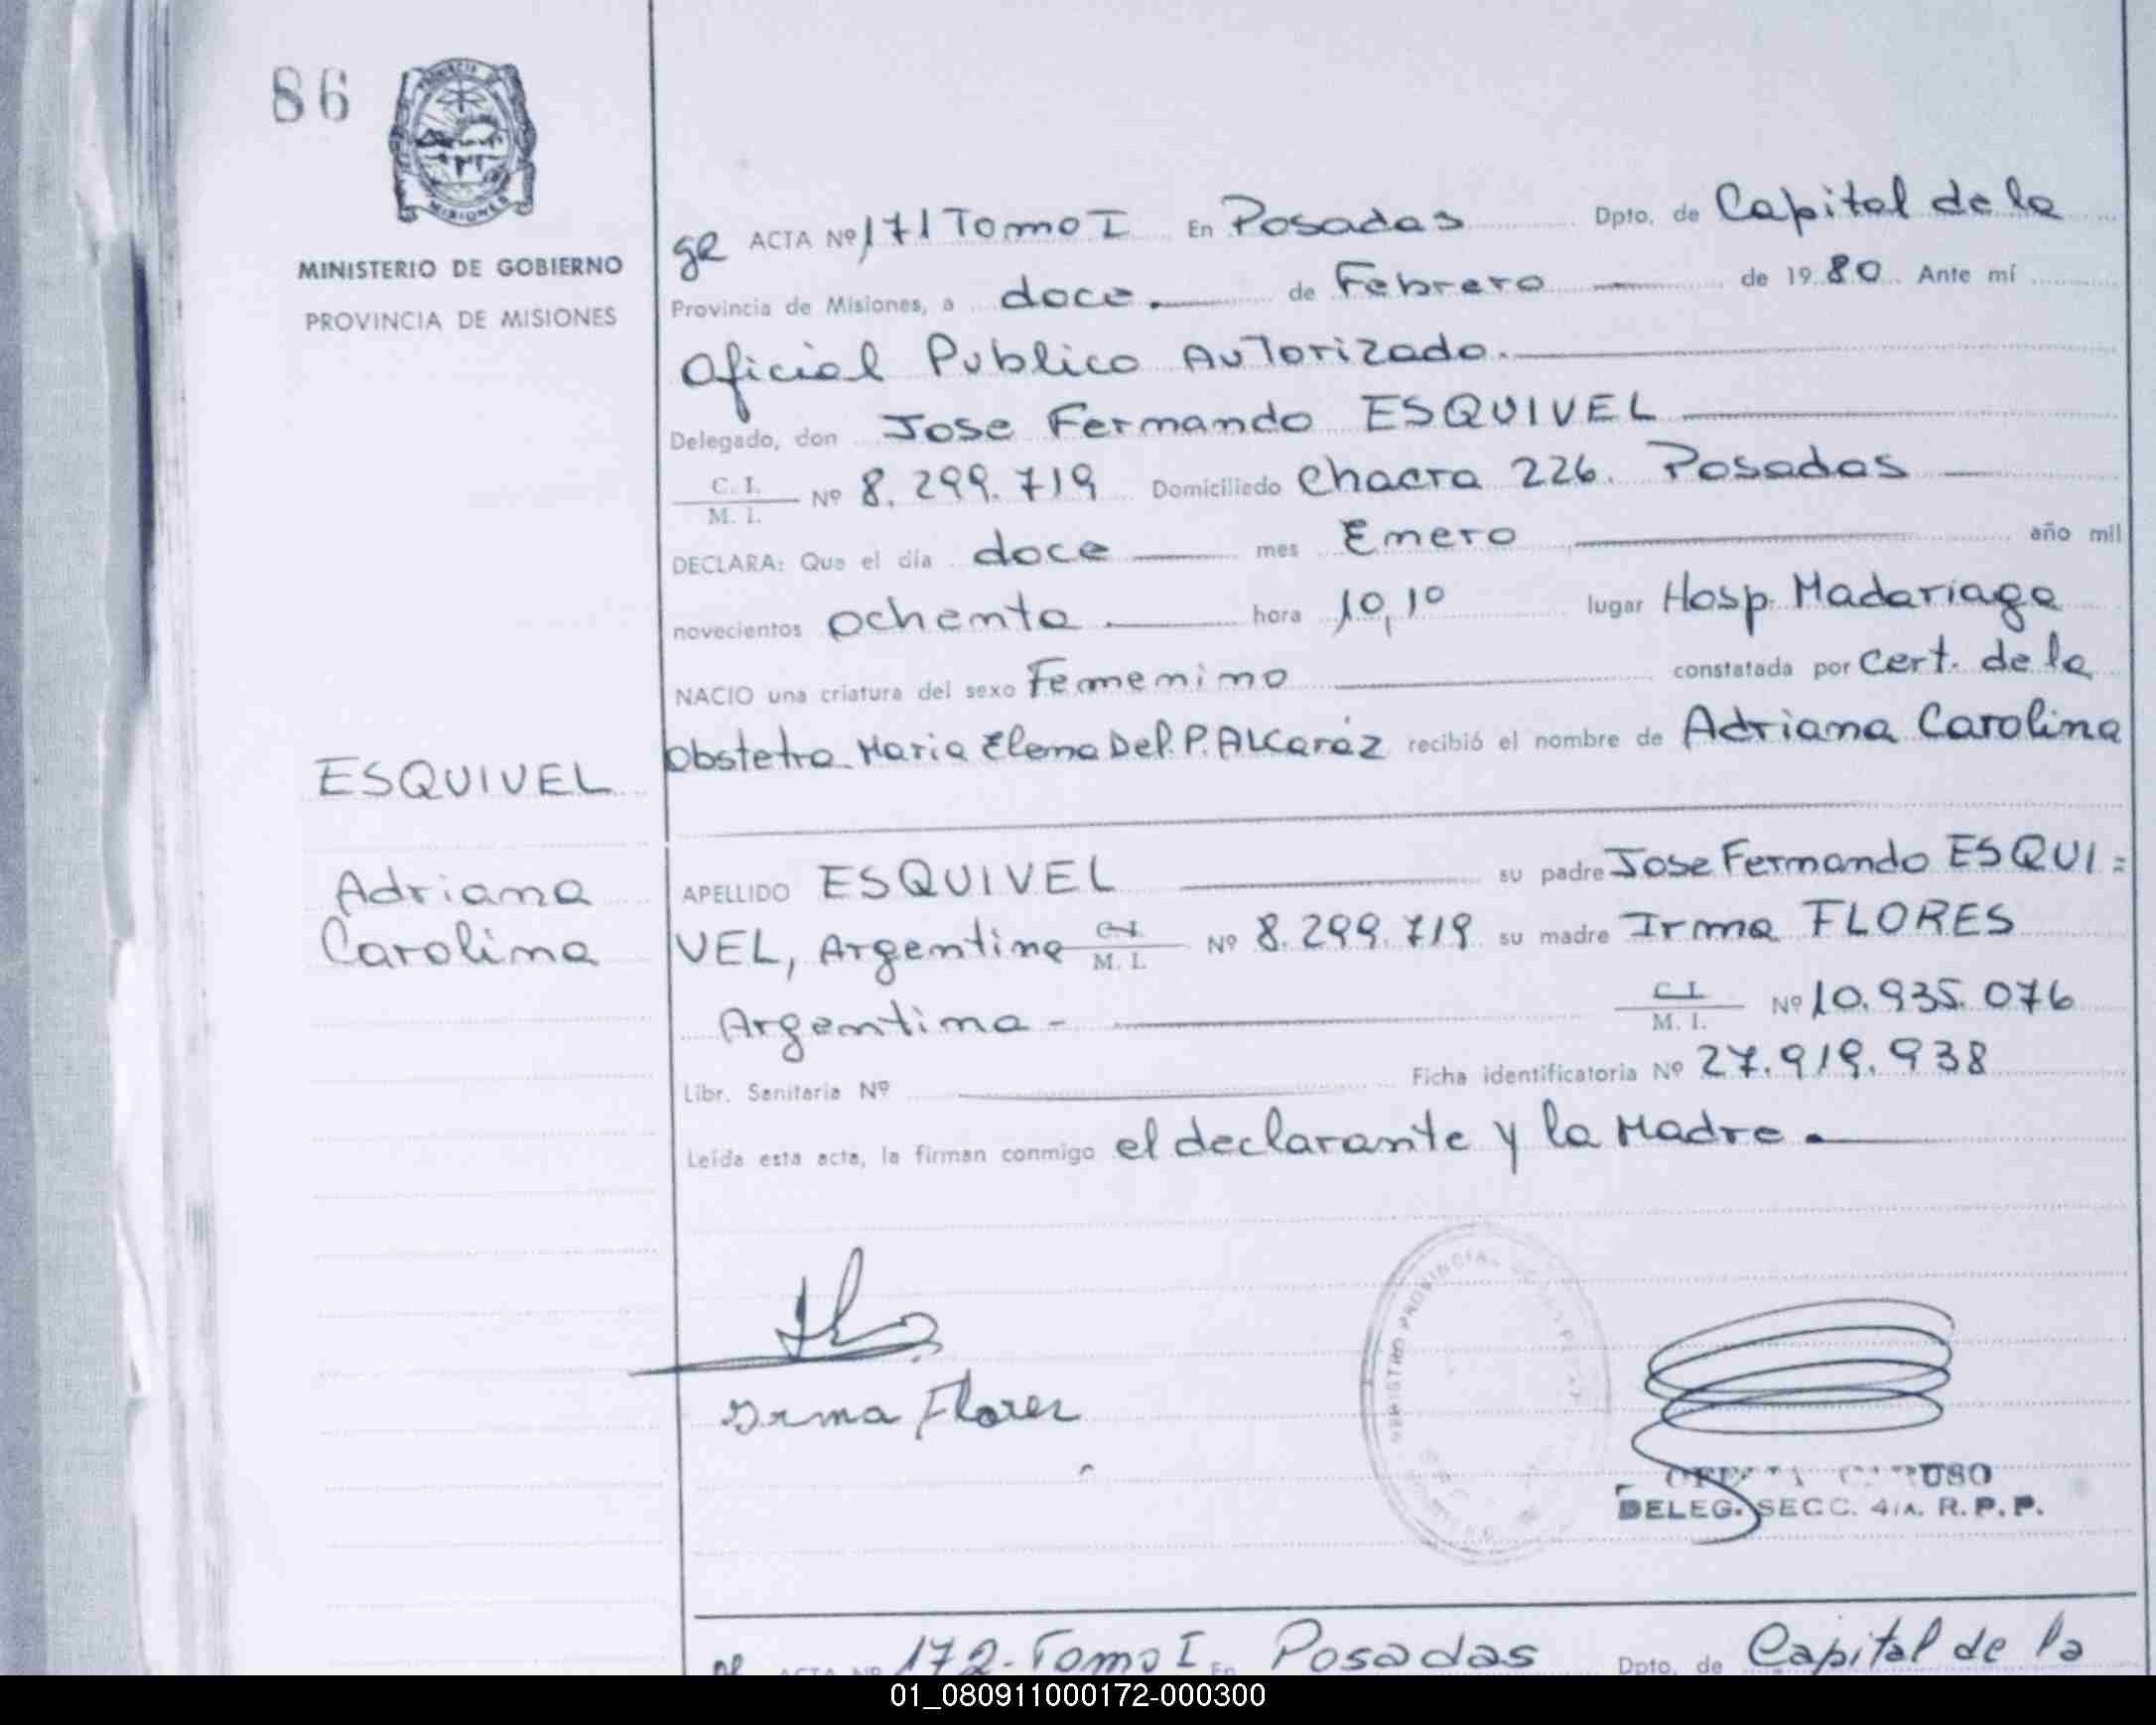 86
MISIONES
MINISTERIO DE GOBIERNO
PROVINCIA DE MISIONES
ACTA Nº 171 Tomo I En Posadas Dpto. de Capital de la
Provincia de Misiones, a doce. de Febrero de 1980. Ante mí
Oficial Publico Autorizado.
Delegado, don Jose Fernando ESQUIVEL
C. I.
M. I. Nº 8.299.719 Domiciliado Chacra 226. Posadas
DECLARA: Que el día doce mes Enero año mil
novecientos ochenta. hora 10,10 lugar Hosp. Madariaga
NACIO una criatura del sexo Femenino constatada por Cert. de la
Obstetra Maria Elena Del. P. Alcaráz recibió el nombre de Adriana Carolina
ESQUIVEL
Adriana
Carolina
APELLIDO ESQUIVEL su padre Jose Fernando ESQUI=
VEL, Argentino C. I.
M. I. Nº 8.299.719 su madre Irma FLORES
Argentina - C. I.
M. I. Nº 10.935.076
Libr. Sanitaria Nº Ficha identificatoria Nº 27.919.938
Leída esta acta, la firman conmigo el declarante y la Madre.
REGISTRO PROVINCIAL DE LAS
Irma Flores
DELEG. SECC. 4ta. R. P. P.
172 - Tomo I En Posadas Dpto. de Capital de la
01_080911000172-000300